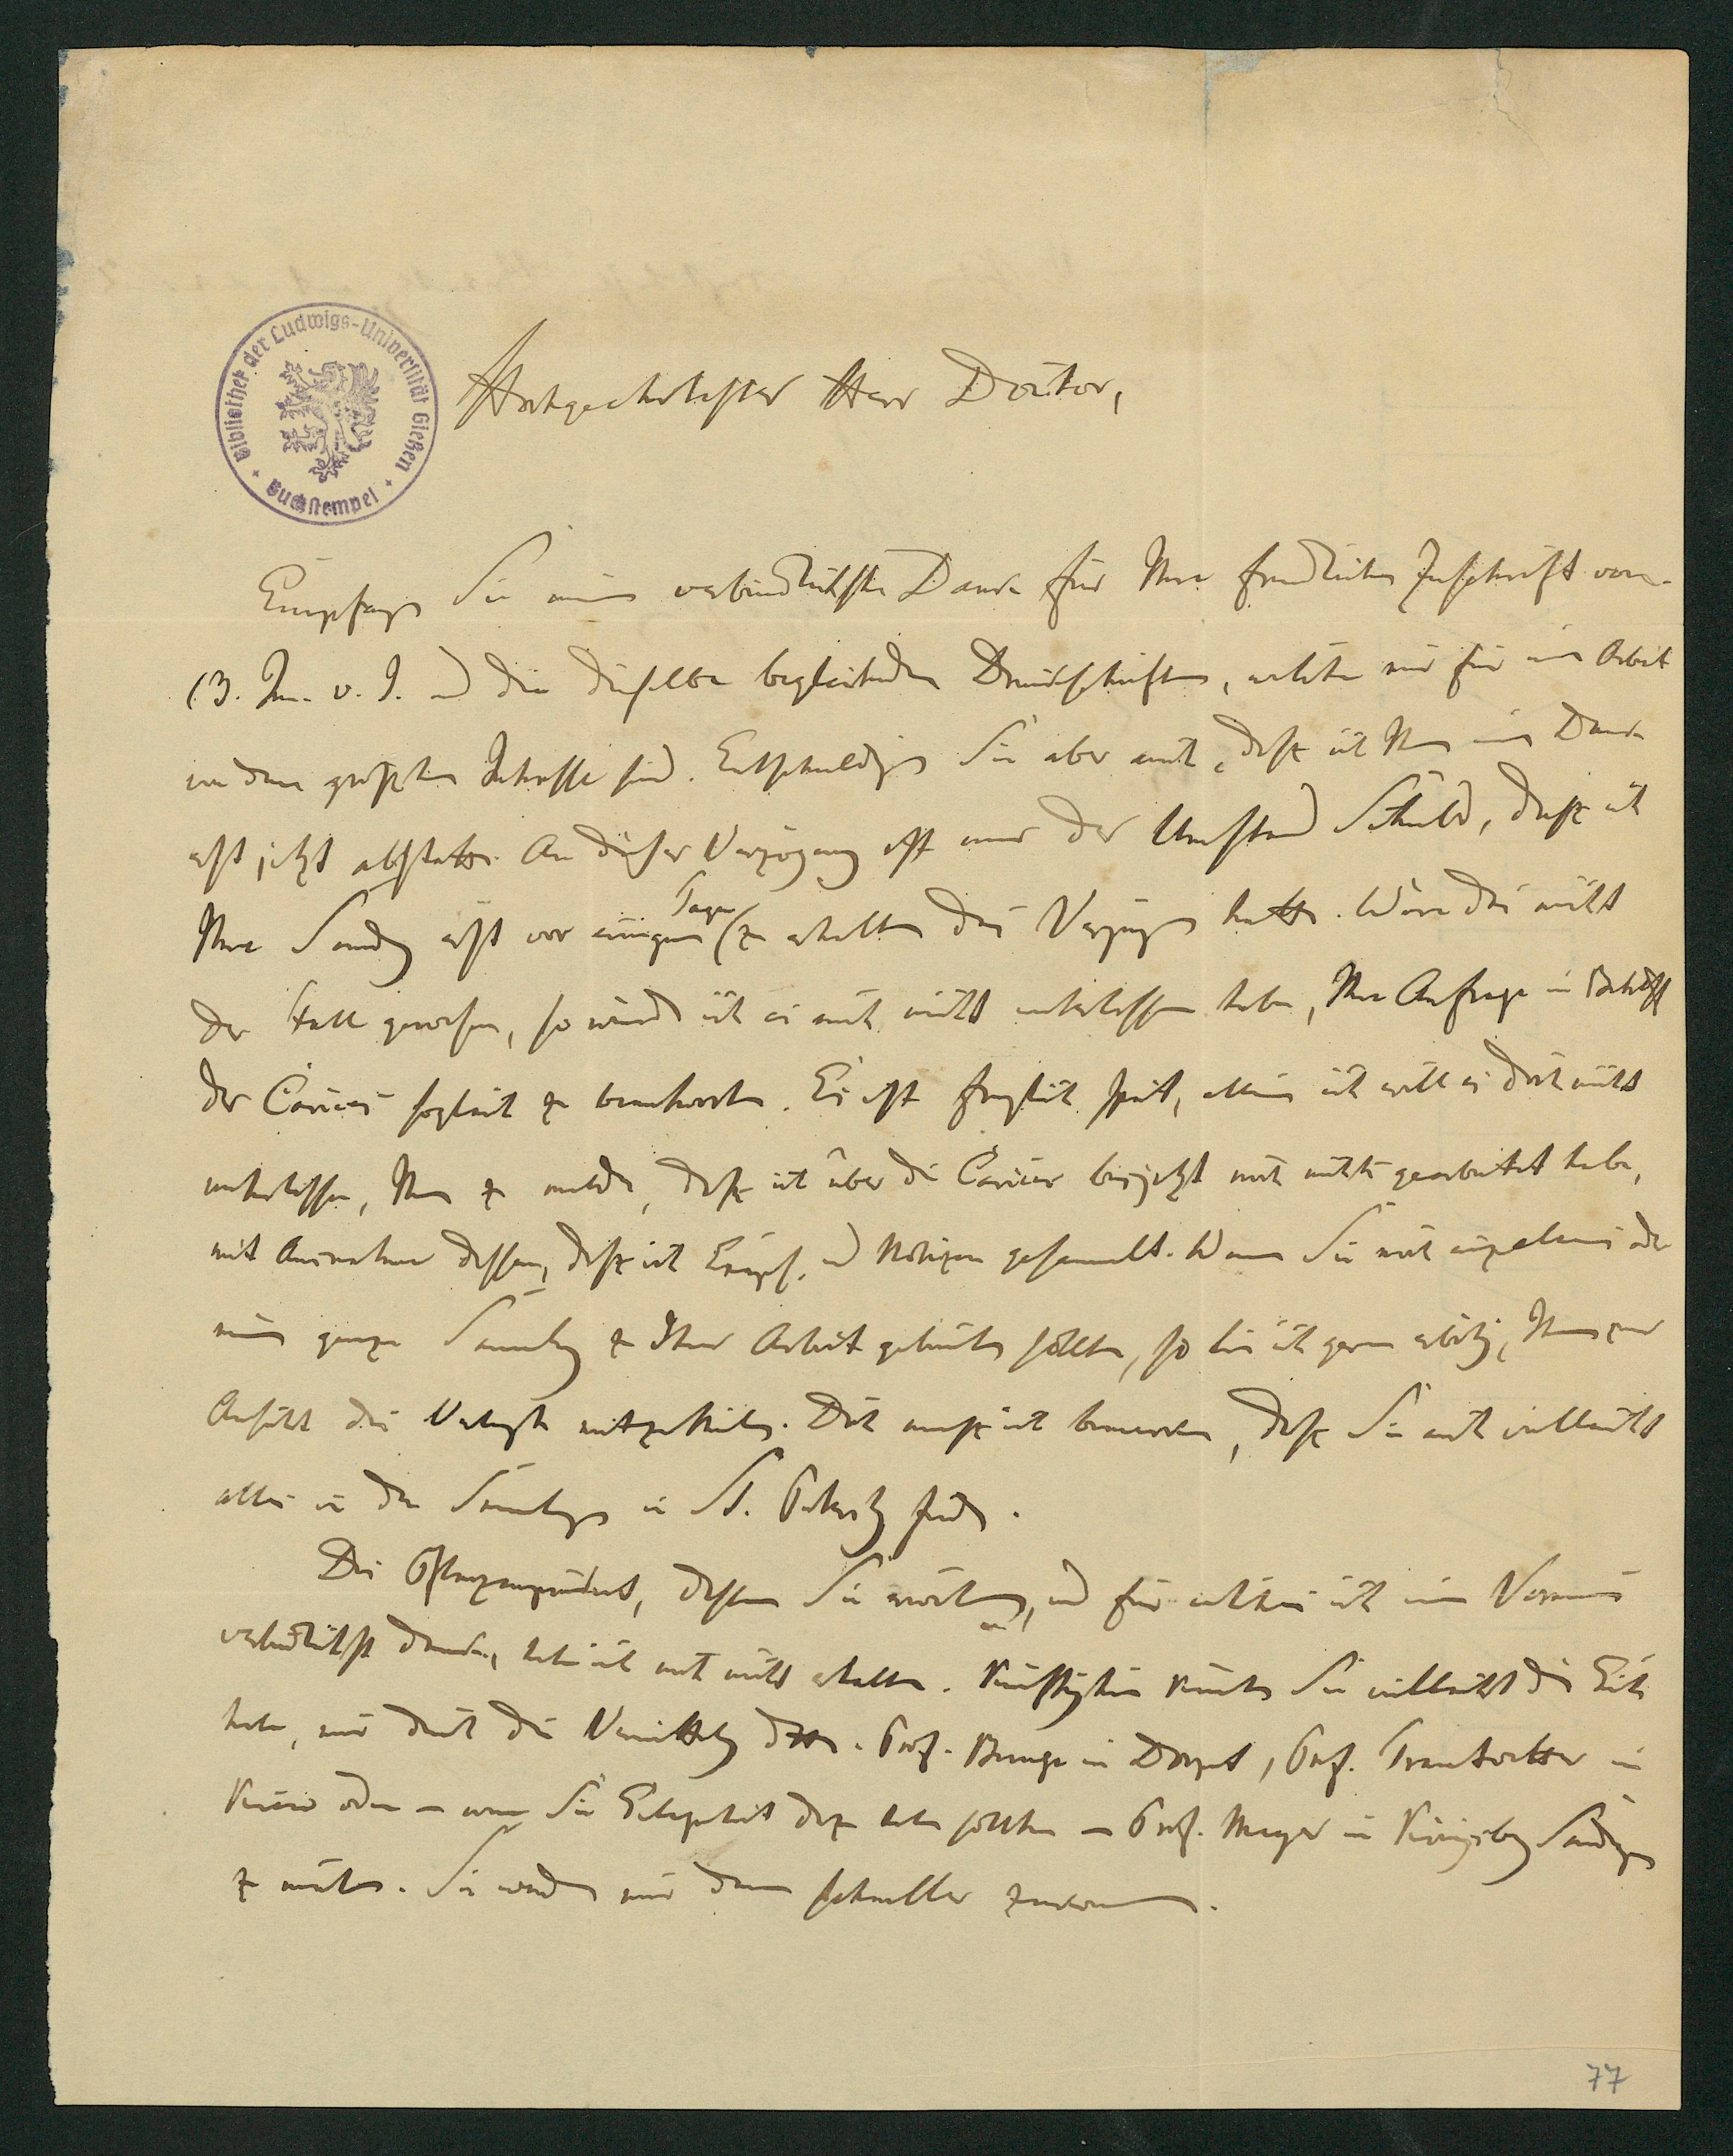 Bibliothek der Ludwigs-Universität Gießen
Buchstempel
Hochgeehrtester Herr Doctor,
Empfangen Sie meinen verbindlichsten Dank für Ihre freundliche Zuschrift vom
13. Jan. v. J. und die dieselbe begleitenden Druckschriften, welche mir für meine Arbeit
von dem größten Interesse sind. Entschuldigen Sie aber auch, daß ich Ihnen meinen Dank
erst jetzt abstatte. An dieser Verzögerung ist nur der Umstand Schuld, daß ich
Ihre Sendung erst vor einigen Tagen zu erhalten das Vergnügen hatte. Wäre dies nicht
der Fall gewesen, so würde ich es auch nicht unterlassen haben, Ihre Anfrage in Betreff
der Carices sogleich zu beantworten. Es ist freylich spät, allein ich will es doch nicht
unterlassen, Ihnen zu melden, daß ich über die Carices bis jetzt noch nichts gearbeitet habe,
mit Ausnahme dessen, daß ich Exempl. und Notizen gesammelt. Wenn Sie noch einzelnes oder
meine ganze Sammlung zu Ihrer Arbeit gebrauchen sollten, so bin ich gern erbötig, Ihnen zur
Ansicht das Verlangte mitzutheilen. Doch muß ich bemerken, daß Sie auch vielleicht
alles in den Sammlungen in St. Petersburg finden.
Das Pflanzenpacket, dessen Sie erwähnen, und für welches ich im Voraus
verbindlichst danke, habe ich noch nicht erhalten. Künftighin könnten Sie vielleicht die Güte
haben, mir durch die Vermittlung d. Herrn Prof. Bunge in Dorpat, Prof. Trautvetter in
Kiew oder – wenn Sie Gelegenheit dazu haben sollten – Prof. Meyer in Königsberg Sendungen
zu machen. Sie werden mir dann schneller zukommen.
77